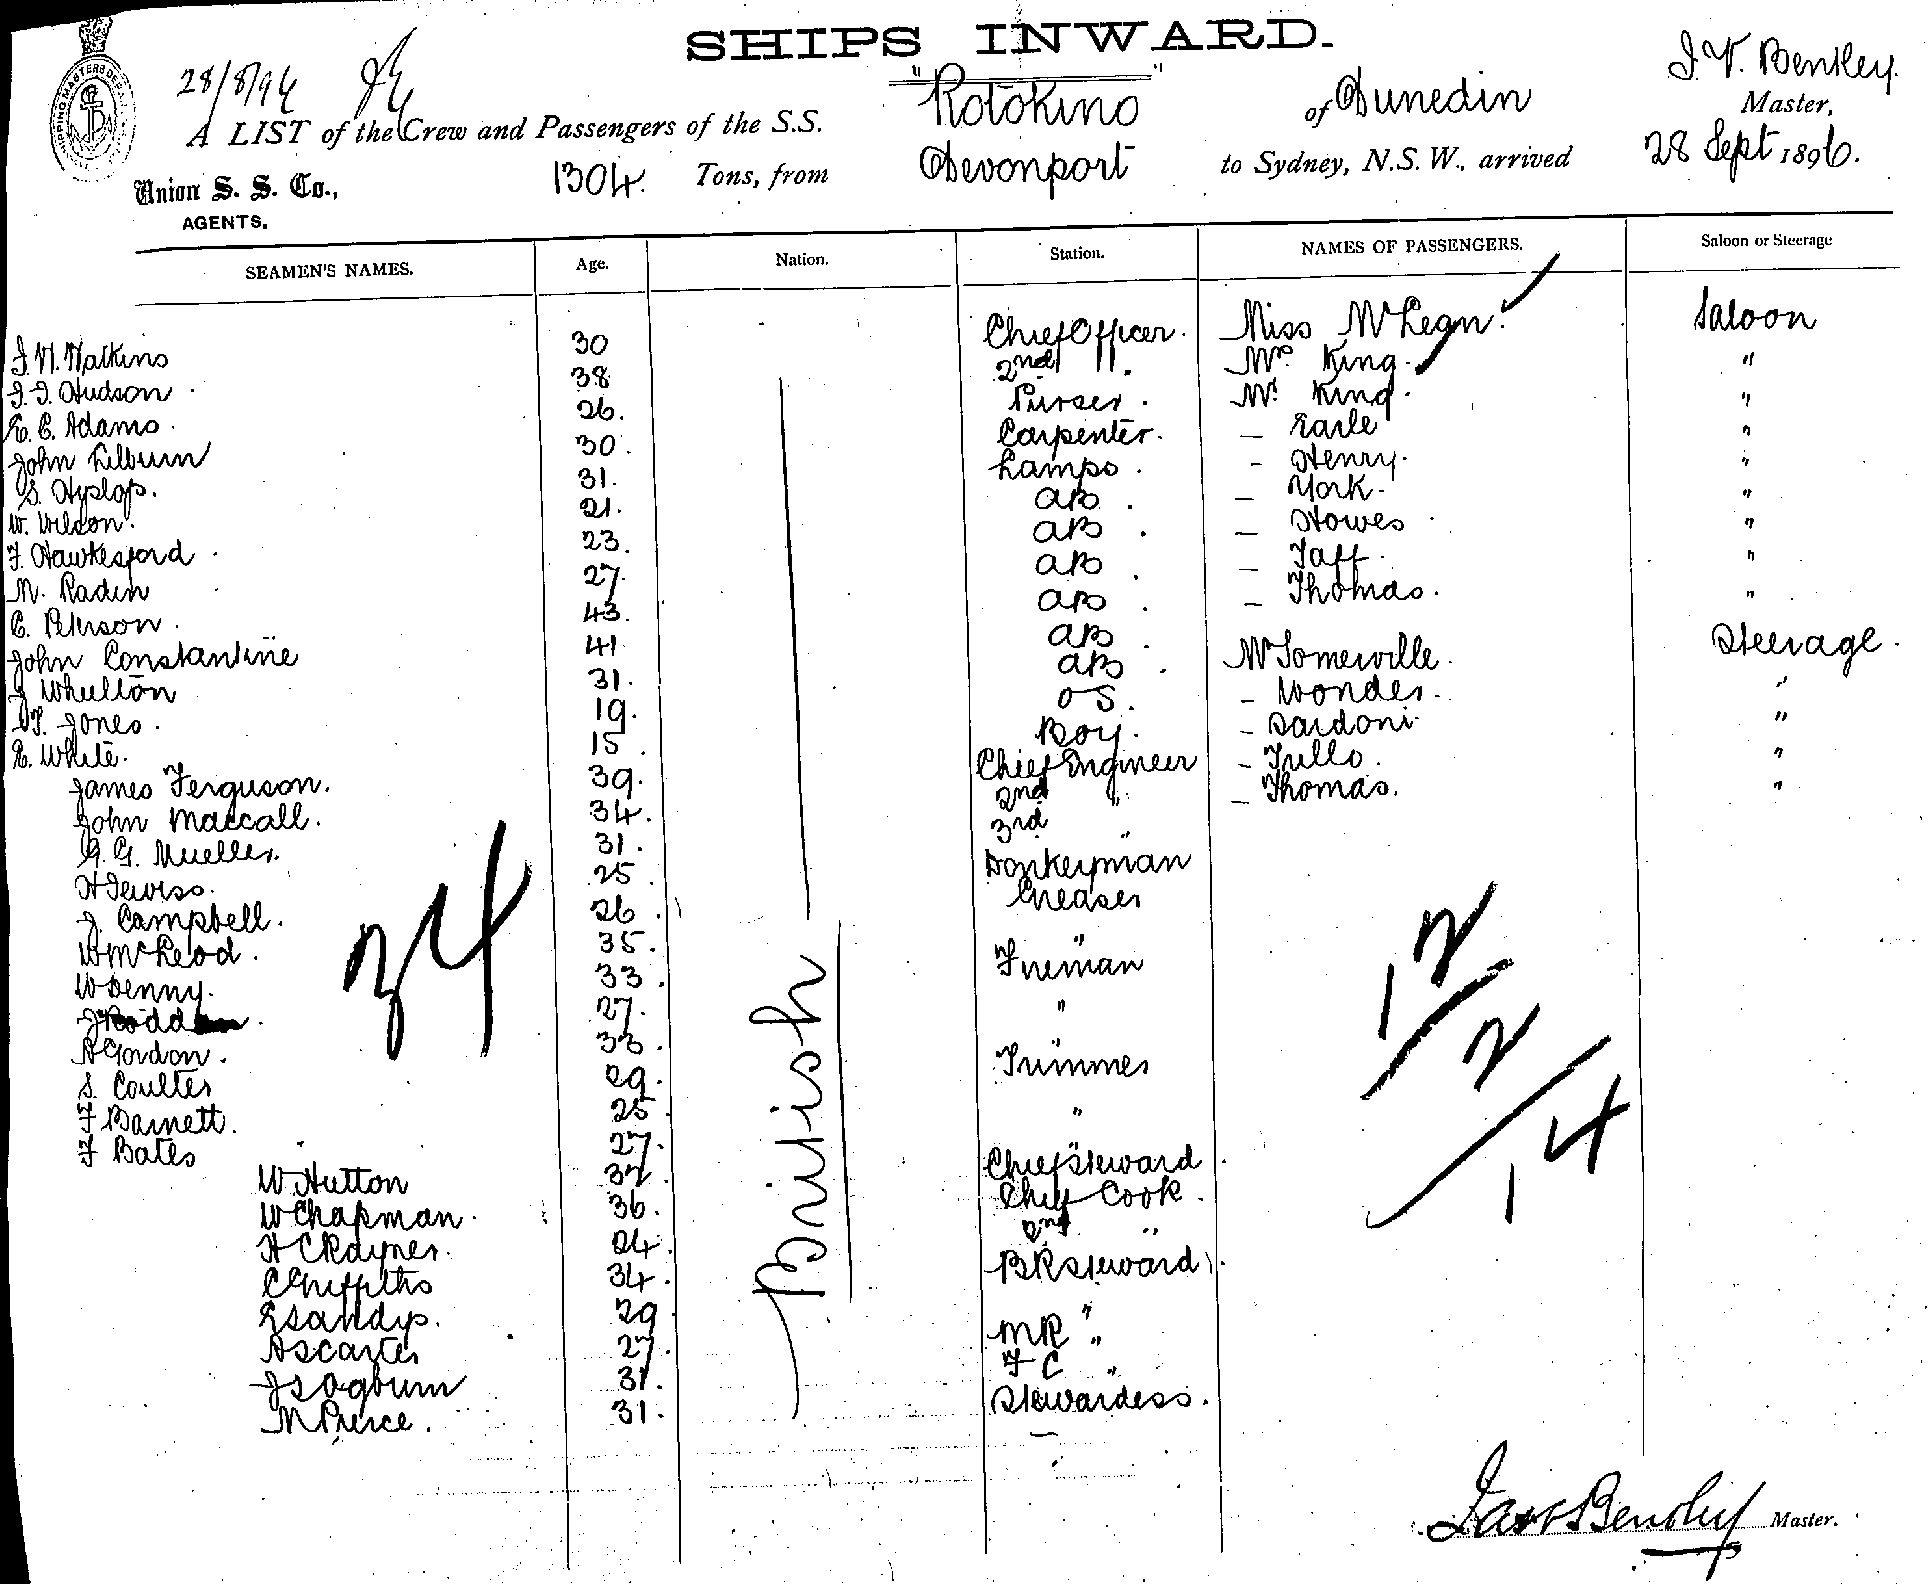 SHIPS INWARD.
28/8/96
A LIST of the Crew and Passengers of the S.S. "Rotokino" of Dunedin J. V. Bentley. Master,
Union S. S. Co., AGENTS. 1304. Tons, from Devonport to Sydney, N.S.W., arrived 28 Sept 1896.
SEAMEN'S NAMES. Age. Nation. Station. NAMES OF PASSENGERS. Saloon or Steerage
J. H. Watkins 30 Chief Officer. Miss McLean. Saloon
J. J. Hudson 38 2nd ". Mrs King. "
E. C. Adams. 26. Purser. Mr. King. "
John Lilburn 30. Carpenter. — Earle "
S. Hyslop. 31. Lamps. — Henry. "
W. Wilson. 21. AB. — York. "
F. Hawkesford 23. AB. — Howes "
M. Raden 27. AB. — Taff. "
C. Peterson. 43. AB. — Thomas. "
John Constantine 41 AB
J Whelton 31. AB. Mr Somerville. Steerage.
W. Jones. 19. OS. — Wonder. "
E. White. 15. Boy. — Sardoni. "
James Ferguson. 39. Chief Engineer — Tullo. "
John Maccall. 34. 2nd " — Thomas. "
G. G. Mueller. 31. 3rd "
H Lewiss. 25. Donkeyman
J. Campbell. 26. Greaser
W McLeod. 35. "
W Denny. 33. Fireman
J Rodd 27. "
A Gordon. 33. "
S. Coulter 29. Trimmer
F Barnett. 25. "
F Bates 27. "
W Hutton 32. Chief Steward
W Chapman. 36. Chief Cook.
H C Rayner. 24. 2nd "
C Griffiths 34. BR Steward
E Sandys. 29. "
A S Carter 27. MR "
J S Ogburn 31. F C "
M Pierce. 31. Stewardess.
British
34
12
2
14
Jas V Bentley Master.